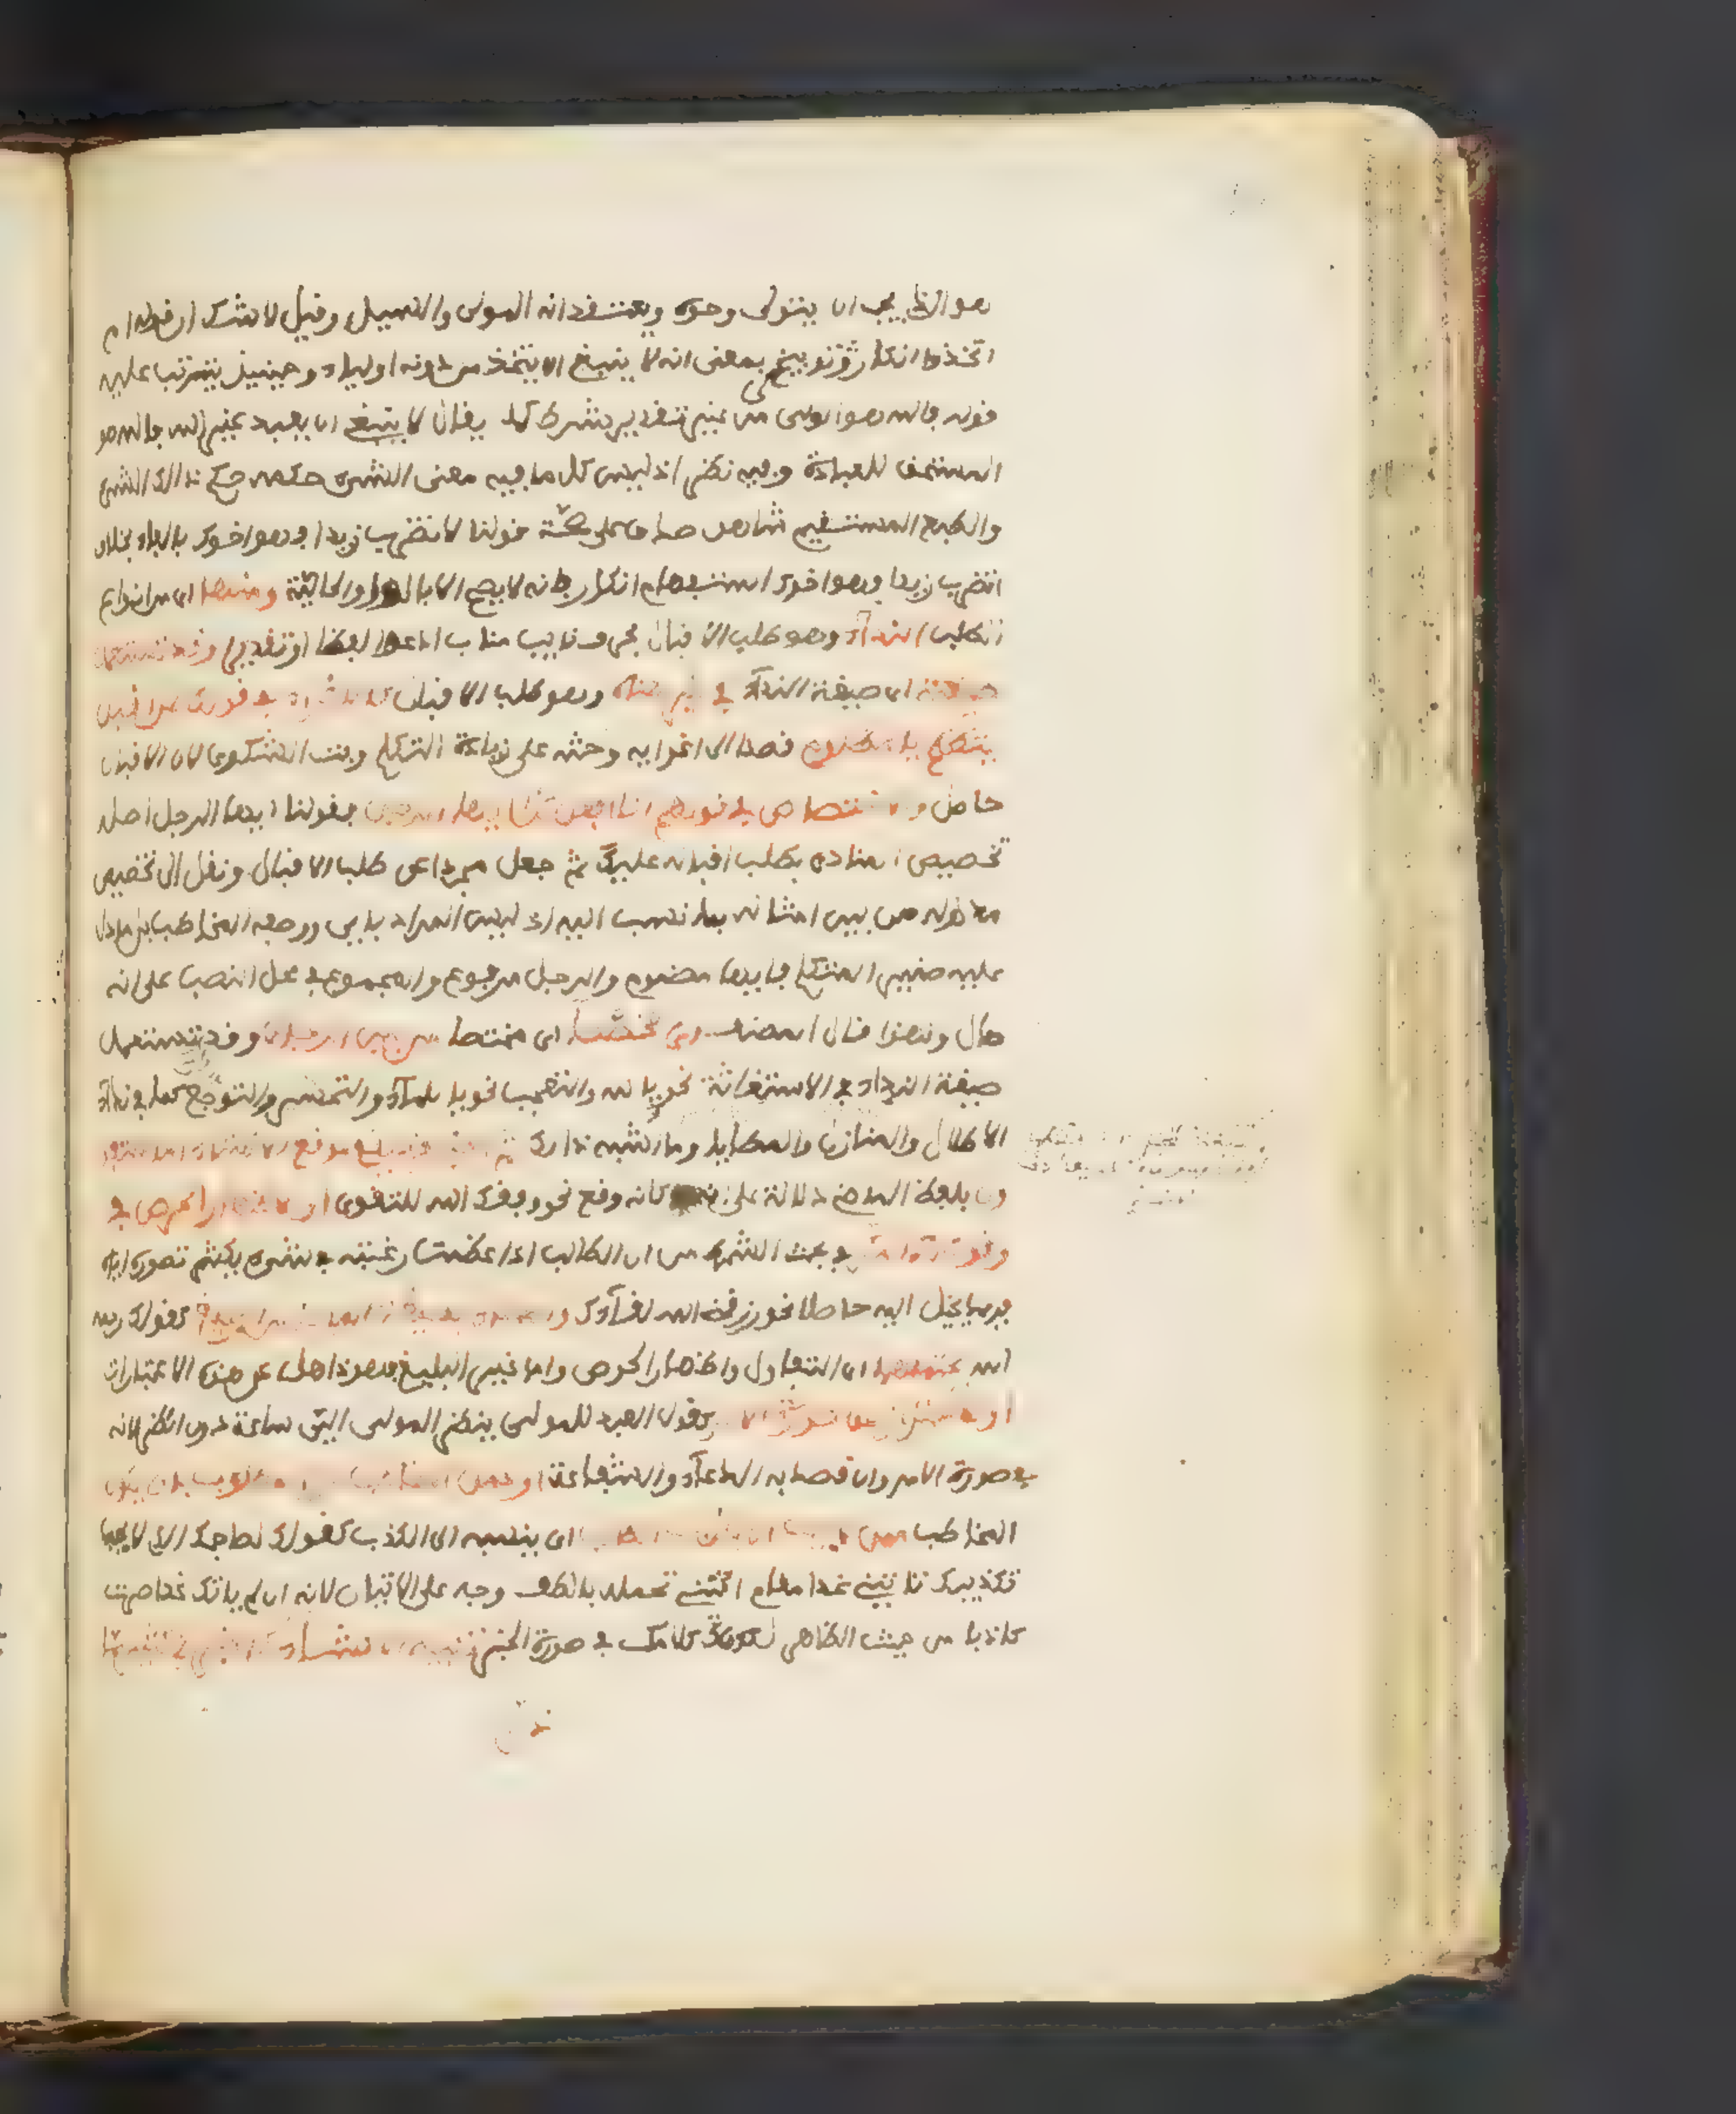 هو الذي يجب ان يتولى وحده ويعتقد انه المولى والسيد وقيل لا شك ان قوله ام
اتخذوا انكار توبيخ بمعنى انه لا ينبغي ان يتخذ من دونه اولياء وحينئذ يترتب عليه
قوله فالله هو الولى من غير تقدير شرط كما يقال لا ينبغي ان يعبد غير الله فالله هو
المستحق للعبادة وفيه نظر اذ ليس كل ما فيه معنى الشيء حكمه حكم ذالك الشيء
والطبع المستقيم شاهد صدق على صحة قولنا لا تضرب زيدا فهو اخوك بالفاء بخلاف
اتضرب زيدا فهو اخوك استفهام انكار فانه لا يصح الا بالواو الحالية ومنها اى من انواع
الطلب النداء وهو طلب الاقبال بحرف نايب مناب ادعو لفظا او تقديرا وقد تستعمل
صيغته اى صيغة النداء في غير معناه وهو طلب الاقبال كالاغراء في قولك لمن اقبل
يتظلم يا مظلوم قصدا الى اغرايه وحثه على زيادة التظلم وبث الشكوى لان الاقبال
حاصل والاختصاص في قولهم انا افعل كذا ايها الرجل فقولنا ايها الرجل اصله
تخصيص المنادى بطلب اقباله عليك ثم جعل مجردا عن طلب الاقبال ونقل الى تخصيص
مدلوله من بين امثاله بما نسب اليه اذ ليس المراد باي ووصفه المخاطب بل ما دل
عليه ضمير المتكلم فايها مضموم والرجل مرفوع والمجموع في محل النصب على انه
حال ولهذا قال المصنف اى متخصصا اى مختصا من بين الرجال وقد تستعمل
صيغة النداء في الاستغاثة نحو يا لله والتعجب نحو يا للماء والتحسر والتوجع كما في نداء
الاطلال والمنازل والمطايا وما اشبه ذالك ثم الخبر قد يقع موقع الانشاء اما للتفاول
بلفظ الماضي دلالة على انه كانه وقع نحو وفقك الله للتقوى او لاظهار الحرص في
وقوعه كما مر في بحث الشرط من ان الطالب اذا عظمت رغبته في شيء يكثر تصوره اياه
فربما يخيل اليه حاصلا نحو رزقني الله لقاءك والدعاء بصيغة الماضي من البليغ كقولك رحمه
الله يحتملهما اى التفاول واظهار الحرص واما غير البليغ فهو ذاهل عن هذه الاعتبارات
او للاحتراز عن صورة الامر كقول العبد للمولى ينظر المولى الي ساعة دون انظر لانه
في صورة الامر وان قصد به الدعاء والشفاعة او لحمل المخاطب على المطلوب بان يكون
المخاطب ممن لا يحب ان يكذب الطالب اى ينسبه الى الكذب كقولك لصاحبك الذي لا يحب
تكذيبك تاتيني غدا مقام ائتني تحمله بالطف وجه على الاتيان لانه ان لم ياتك غدا صرت
كاذبا من حيث الظاهر لكون كلامك في صورة الخبر تنبيه الانشاء كالخبر في كثير مما